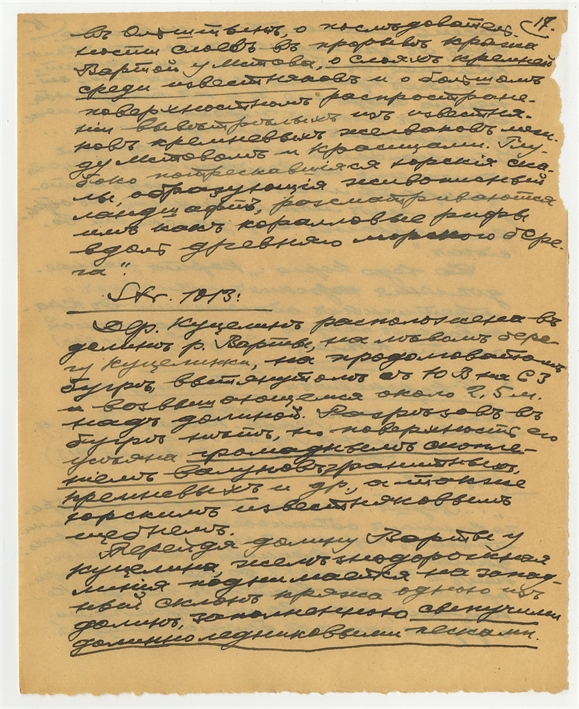 17.
въ Ольштынѣ, о послѣдователь-
ности слоевъ въ прорывѣ кряжа
Вартой у Мстова, о слояхъ кремней
среди известняковъ и о большомъ
поверхностномъ распростране-
ніи вывѣтрѣлыхъ изъ известня-
ковъ кремневыхъ желваковъ меж-
ду Мстовомъ и Красицами. Глу-
боко потрескавшіяся юрскія ска-
лы, образующія живописный
ландшафтъ, разсматриваются
имъ какъ коралловые рифы
вдоль древняго морского бере-
га".
Str. 1013:
Дер. Куцелинъ расположена въ
долинѣ р. Варты, на лѣвомъ бере-
гу Куцелинки, на продолговатомъ
бугрѣ, вытянутомъ съ ЮВ на СЗ
и возвышающемся около 2,5 м.
надъ долиной. Разрѣзовъ въ
бугрѣ нѣтъ, но поверхность его
усѣяна громаднымъ скопле-
ніемъ валуновъ гранитныхъ,
кремневыхъ и др., а также
юрскимъ известняковымъ
щебнемъ.
Перейдя долину Варты у
Куцелина, желѣзнодорожная
линія поднимается на запад-
ный склонъ кряжа одною изъ
долинъ, заполненною сыпучими
долинноледниковыми песками.